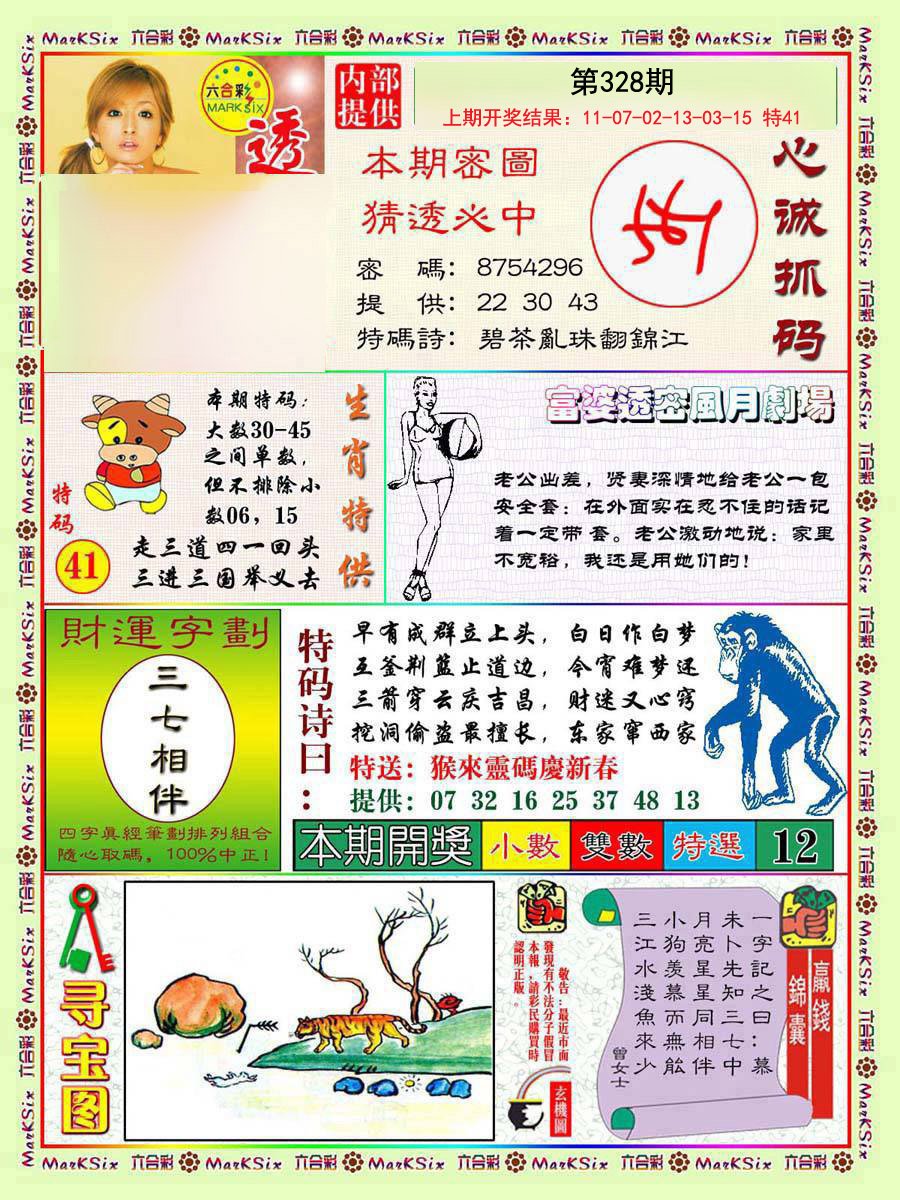 MarKSix 六合彩 MarKSix 六合彩 MarKSix 六合彩 MarKSix 六合彩 MarKSix 六合彩
六合彩
MARKSix
透
内部
提供
第328期
上期开奖结果：11-07-02-13-03-15 特41
本期密圖
猜透必中
密 碼：8754296
提 供：22 30 43
特碼詩：碧茶亂珠翻錦江
心诚抓码
本期特码：
大数30-45
之间单数，
但不排除小
数06，15
走三道四一回头
三进三国举义去
生肖特供
特码
41
富婆透密風月劇場
老公出差，贤妻深情地给老公一包
安全套：在外面实在忍不住的话记
着一定带 套。老公激动地说：家里
不宽裕，我还是用她们的！
財運字劃
三七相伴
四字真經筆劃排列組合
隨心取碼，100%中正！
特码诗曰：
早有成群立上头，白日作白梦
五釜荆蓝止道边，今宵难梦还
三箭穿云庆吉昌，财迷又心窍
挖洞偷盗最擅长，东家窜西家
特送：猴來靈碼慶新春
提供：07 32 16 25 37 48 13
本期開獎 小數 雙數 特選 12
寻宝图
敬告：最近市面
發現有不法分子假冒
本報，請彩民購買時
認明正版。
玄機圖
一字記之曰：慕
未卜先知三七中
月亮星星同相伴
小狗羨慕而無能
三江水淺魚來少
曾女士
贏錢
錦囊
MarKSix 六合彩 MarKSix 六合彩 MarKSix 六合彩 MarKSix 六合彩 MarKSix 六合彩